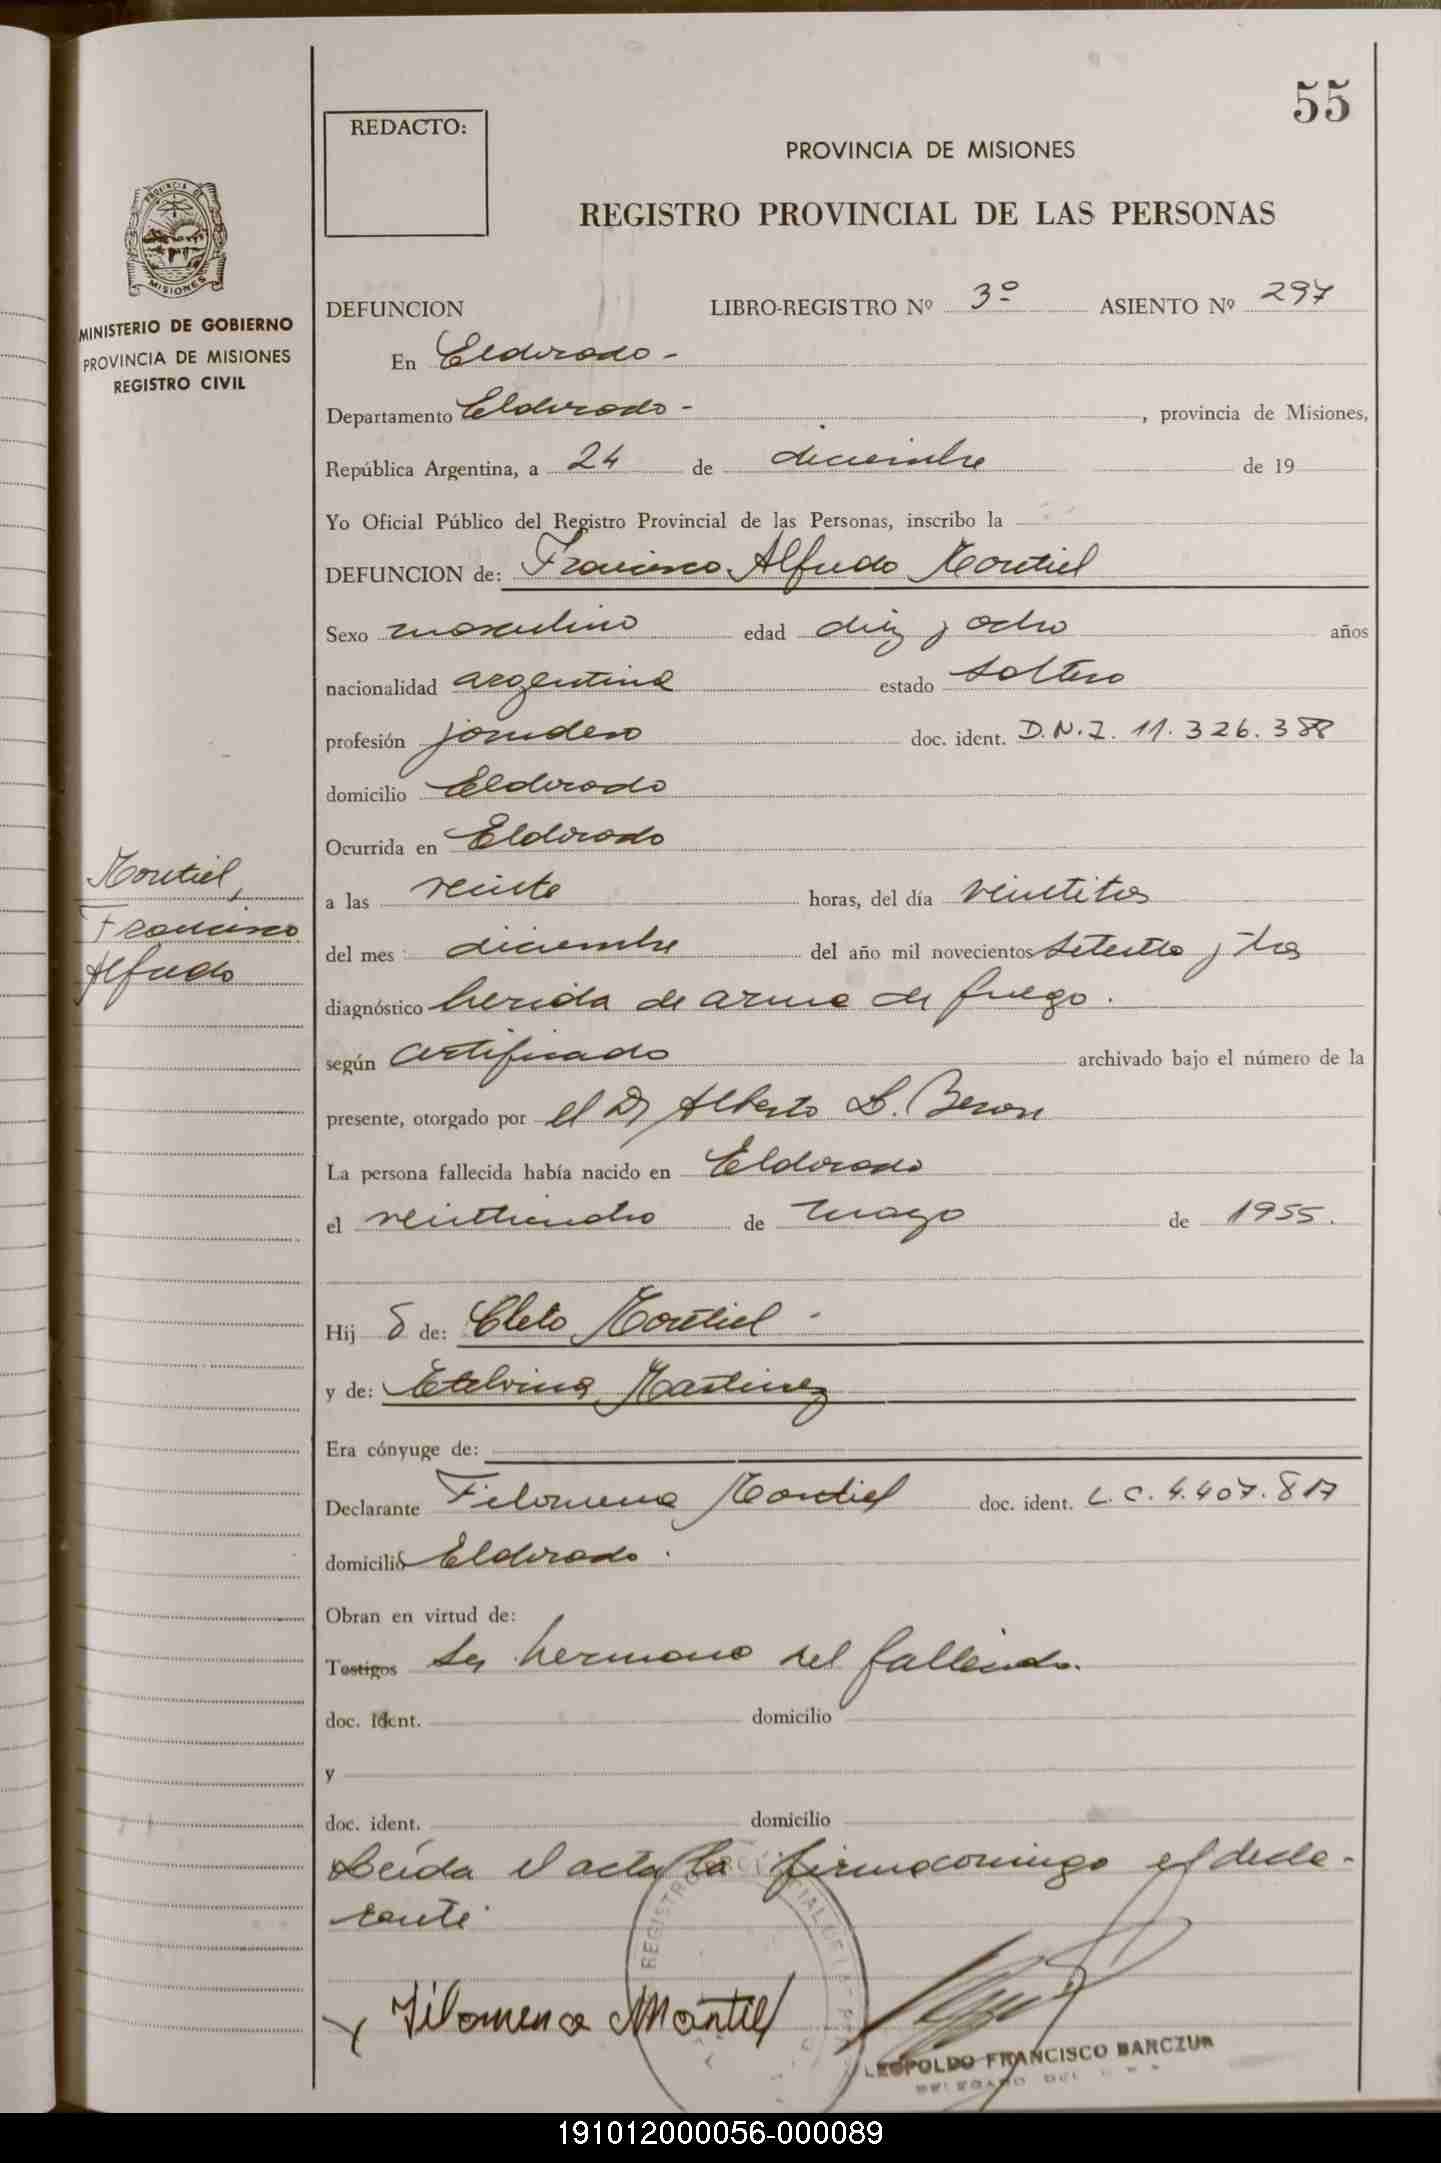 55
REDACTO:
PROVINCIA DE MISIONES
REGISTRO PROVINCIAL DE LAS PERSONAS
PROVINCIA DE
MISIONES
MINISTERIO DE GOBIERNO
PROVINCIA DE MISIONES
REGISTRO CIVIL
DEFUNCION LIBRO-REGISTRO Nº 3º ASIENTO Nº 297
En Eldorado -
Departamento Eldorado - , provincia de Misiones,
República Argentina, a 24 de diciembre de 19
Yo Oficial Público del Registro Provincial de las Personas, inscribo la
DEFUNCION de: Francisco Alfredo Montiel
Sexo masculino edad diez y ocho años
nacionalidad argentina estado soltero
profesión jornalero doc. ident. D.N.I. 11.326.388
domicilio Eldorado
Ocurrida en Eldorado
Montiel,
Francisco
Alfredo
a las veinte horas, del día veintitres
del mes diciembre del año mil novecientos setenta y tres
diagnóstico herida de arma de fuego.
según certificado archivado bajo el número de la
presente, otorgado por el Dr Alberto D. Beron
La persona fallecida había nacido en Eldorado
el veintiocho de mayo de 1955.
Hij o de: Cleto Montiel -
y de: Etelvina Martinez
Era cónyuge de:
Declarante Filomena Montiel doc. ident. L.C. 4.407.817
domicilio Eldorado.
Obran en virtud de:
Testigos ser hermano del fallecido.
doc. ident. domicilio
y
doc. ident. domicilio
Leída el acta la firma conmigo el decla-
rante
REGISTRO PROVINCIAL DE LA
Filomena Montiel
LEOPOLDO FRANCISCO BARCZUK
DELEGADO DEL
191012000056-000089